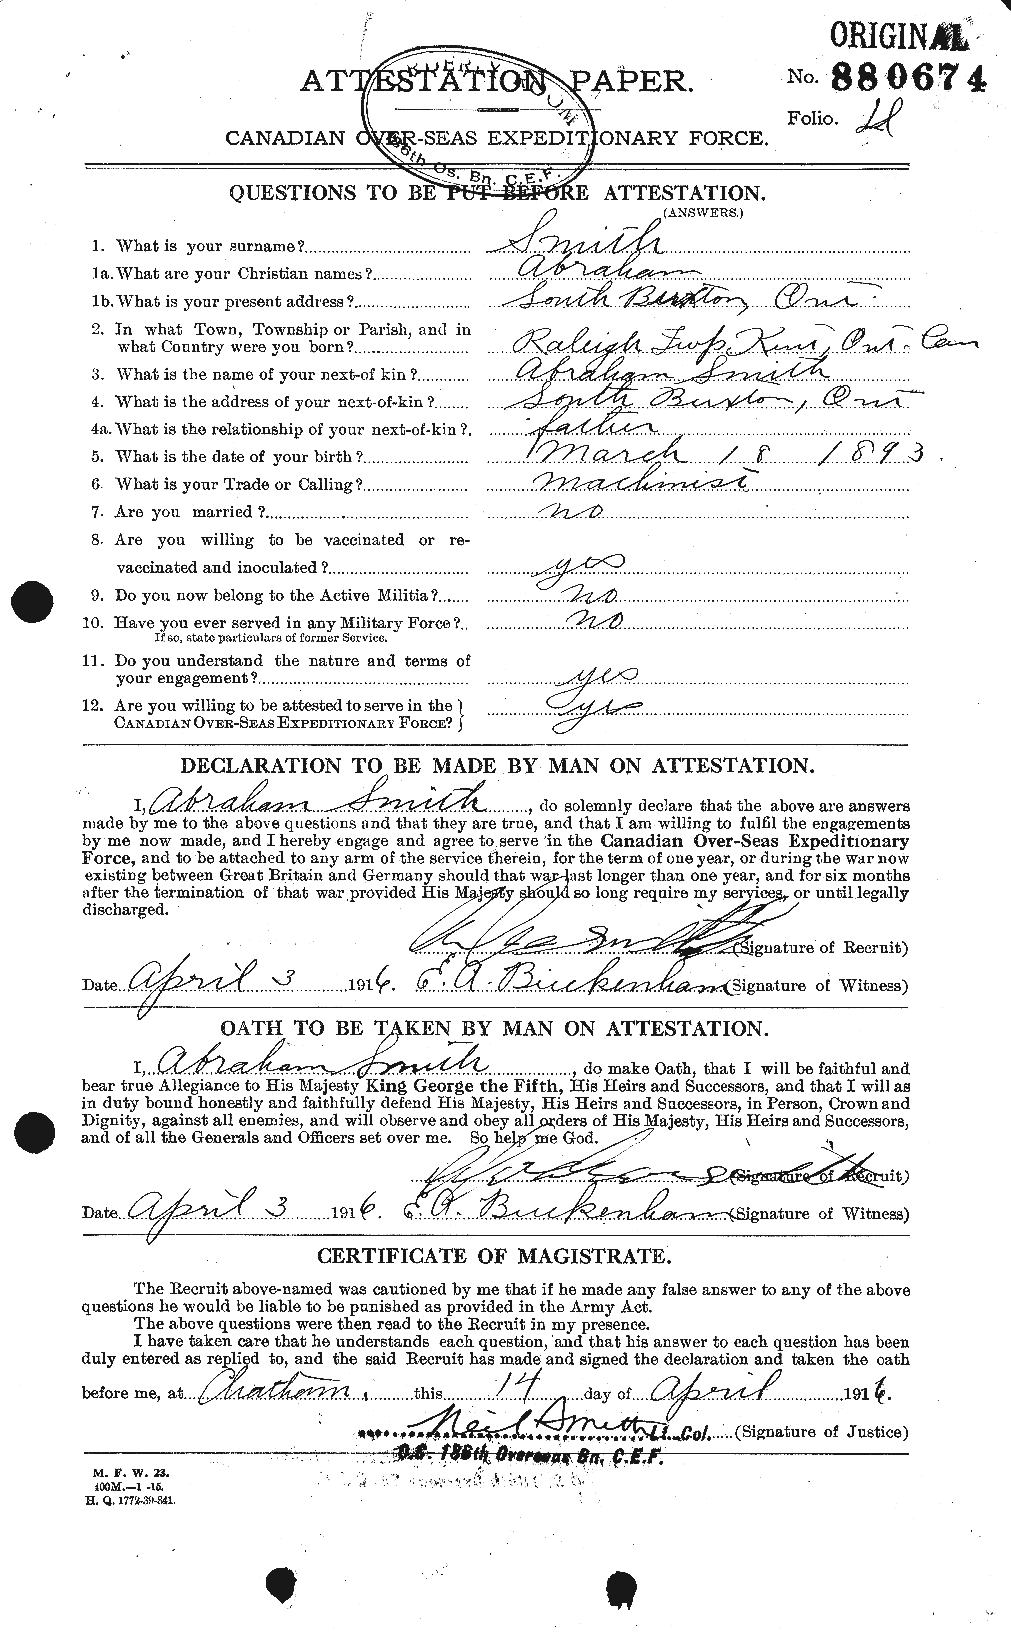 ORIGINAL
ATTESTATION PAPER.
No. 880674
Folio.
CANADIAN OVER-SEAS EXPEDITIONARY FORCE.
186th Os. Bn. C.E.F.
QUESTIONS TO BE PUT BEFORE ATTESTATION.
(ANSWERS.)
1. What is your surname? Smith
1a. What are your Christian names? Abraham
1b. What is your present address? South Buxton, Ont.
2. In what Town, Township or Parish, and in
what Country were you born? Raleigh Twp. Kent, Ont. Can
3. What is the name of your next-of kin? Abraham Smith
4. What is the address of your next-of-kin? South Buxton, Ont
4a. What is the relationship of your next-of-kin? father
5. What is the date of your birth? March 18 1893.
6. What is your Trade or Calling? Machinist
7. Are you married? no
8. Are you willing to be vaccinated or re-
vaccinated and inoculated? yes
9. Do you now belong to the Active Militia? no
10. Have you ever served in any Military Force? no
If so, state particulars of former Service.
11. Do you understand the nature and terms of
your engagement? yes
12. Are you willing to be attested to serve in the }
CANADIAN OVER-SEAS EXPEDITIONARY FORCE? } yes
DECLARATION TO BE MADE BY MAN ON ATTESTATION.
I, Abraham Smith, do solemnly declare that the above are answers
made by me to the above questions and that they are true, and that I am willing to fulfil the engagements
by me now made, and I hereby engage and agree to serve in the Canadian Over-Seas Expeditionary
Force, and to be attached to any arm of the service therein, for the term of one year, or during the war now
existing between Great Britain and Germany should that war last longer than one year, and for six months
after the termination of that war provided His Majesty should so long require my services, or until legally
discharged.
Smith (Signature of Recruit)
Date April 3 1916. E. A. Buckenham (Signature of Witness)
OATH TO BE TAKEN BY MAN ON ATTESTATION.
I, Abraham Smith, do make Oath, that I will be faithful and
bear true Allegiance to His Majesty King George the Fifth, His Heirs and Successors, and that I will as
in duty bound honestly and faithfully defend His Majesty, His Heirs and Successors, in Person, Crown and
Dignity, against all enemies, and will observe and obey all orders of His Majesty, His Heirs and Successors,
and of all the Generals and Officers set over me. So help me God.
Abraham Smith (Signature of Recruit)
Date April 3 1916. E. A. Buckenham (Signature of Witness)
CERTIFICATE OF MAGISTRATE.
The Recruit above-named was cautioned by me that if he made any false answer to any of the above
questions he would be liable to be punished as provided in the Army Act.
The above questions were then read to the Recruit in my presence.
I have taken care that he understands each question, and that his answer to each question has been
duly entered as replied to, and the said Recruit has made and signed the declaration and taken the oath
before me, at Chatham, this 14 day of April 1916.
Neil Smith Lt. Col. (Signature of Justice)
O.C. 186th Overseas Bn. C.E.F.
M. F. W. 23.
400M.—1 -15.
H. Q. 1772-39-841.